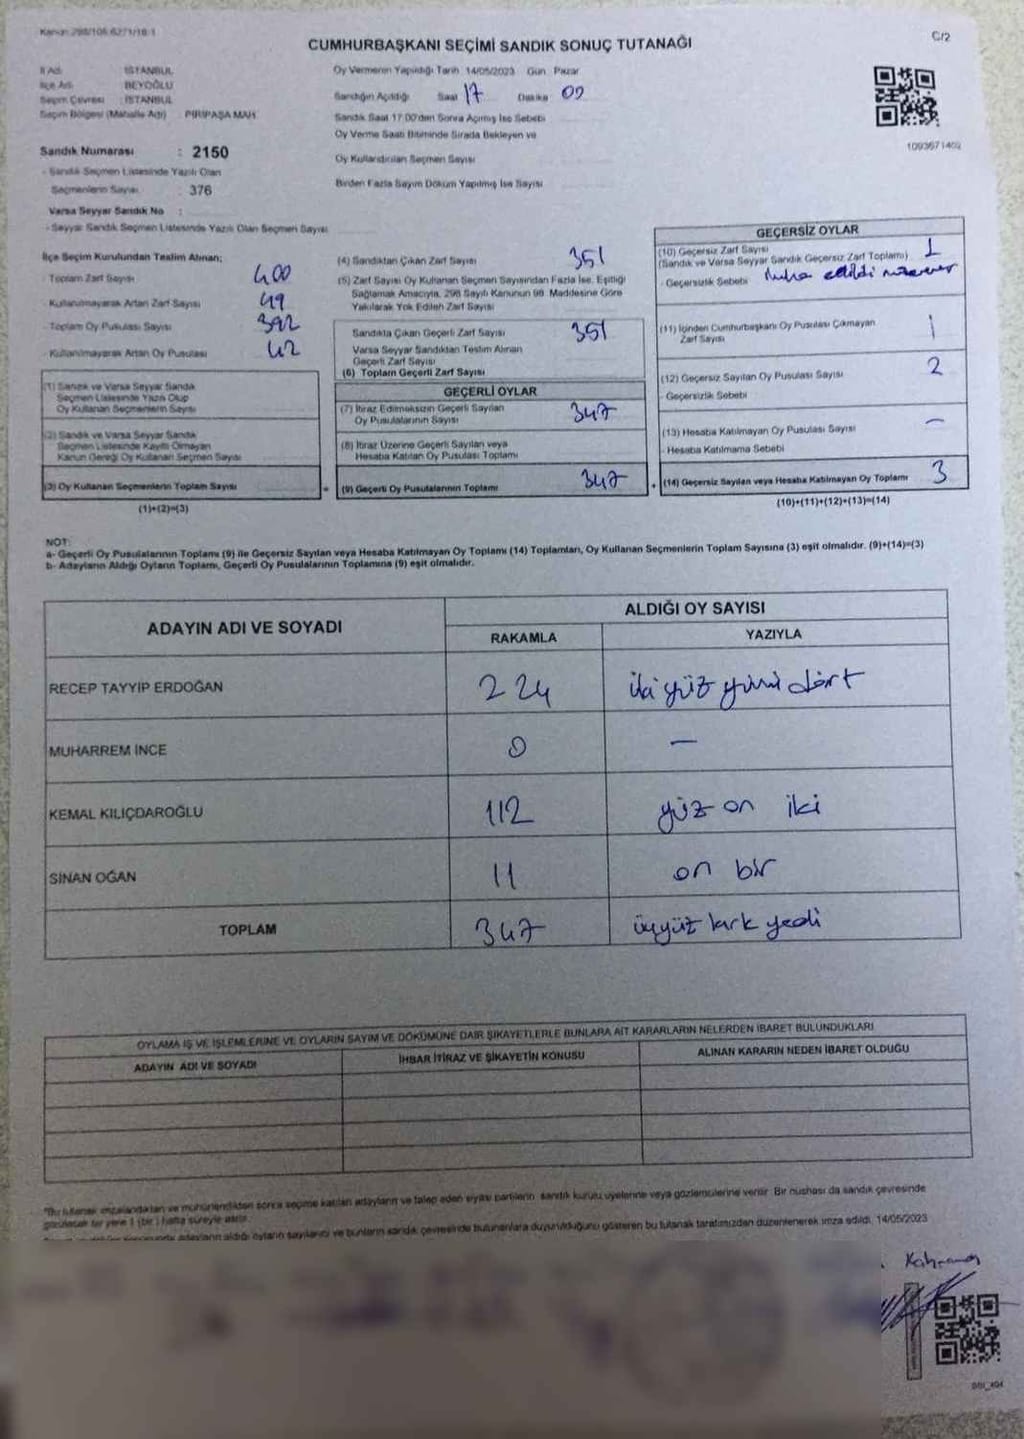 Kanun: 298/105 6271/18:1
CUMHURBAŞKANI SEÇİMİ SANDIK SONUÇ TUTANAĞI
C/2
İl Adı : İSTANBUL
İlçe Adı : BEYOĞLU
Seçim Çevresi : İSTANBUL
Seçim Bölgesi (Mahalle Adı) : PİRİPAŞA MAH.
Sandık Numarası : 2150
- Sandık Seçmen Listesinde Yazılı Olan
Seçmenlerin Sayısı : 376
Varsa Seyyar Sandık No :
- Seyyar Sandık Seçmen Listesinde Yazılı Olan Seçmen Sayısı
Oy Vermenin Yapıldığı Tarih 14/05/2023 Gün Pazar
Sandığın Açıldığı Saat 17 Dakika 09
Sandık Saat 17:00'den Sonra Açılmış İse Sebebi
Oy Verme Saati Bitiminde Sırada Bekleyen ve
Oy Kullandırılan Seçmen Sayısı
Birden Fazla Sayım Döküm Yapılmış İse Sayısı
1093671402
İlçe Seçim Kurulundan Teslim Alınan;
- Toplam Zarf Sayısı 400
- Kullanılmayarak Artan Zarf Sayısı 49
- Toplam Oy Pusulası Sayısı 392
- Kullanılmayarak Artan Oy Pusulası 42
(1) Sandık ve Varsa Seyyar Sandık
Seçmen Listesinde Yazılı Olup
Oy Kullanan Seçmenlerin Sayısı
(2) Sandık ve Varsa Seyyar Sandık
Seçmen Listesinde Kayıtlı Olmayan
Kanun Gereği Oy Kullanan Seçmen Sayısı
(3) Oy Kullanan Seçmenlerin Toplam Sayısı
(1)+(2)=(3)
=
(4) Sandıktan Çıkan Zarf Sayısı 351
(5) Zarf Sayısı Oy Kullanan Seçmen Sayısından Fazla İse, Eşitliği
Sağlamak Amacıyla, 298 Sayılı Kanunun 98. Maddesine Göre
Yakılarak Yok Edilen Zarf Sayısı
Sandıkta Çıkan Geçerli Zarf Sayısı 351
Varsa Seyyar Sandıktan Teslim Alınan
Geçerli Zarf Sayısı
(6) Toplam Geçerli Zarf Sayısı
GEÇERLİ OYLAR
(7) İtiraz Edilmeksizin Geçerli Sayılan
Oy Pusulalarının Sayısı 347
(8) İtiraz Üzerine Geçerli Sayılan veya
Hesaba Katılan Oy Pusulası Toplamı
(9) Geçerli Oy Pusulalarının Toplamı 347
+
GEÇERSİZ OYLAR
(10) Geçersiz Zarf Sayısı 1
(Sandık ve Varsa Seyyar Sandık Geçersiz Zarf Toplamı)
- Geçersizlik Sebebi imha edildi
(11) İçinden Cumhurbaşkanı Oy Pusulası Çıkmayan
Zarf Sayısı 1
(12) Geçersiz Sayılan Oy Pusulası Sayısı 2
- Geçersizlik Sebebi
(13) Hesaba Katılmayan Oy Pusulası Sayısı –
- Hesaba Katılmama Sebebi
(14) Geçersiz Sayılan veya Hesaba Katılmayan Oy Toplamı 3
(10)+(11)+(12)+(13)=(14)
NOT:
a- Geçerli Oy Pusulalarının Toplamı (9) ile Geçersiz Sayılan veya Hesaba Katılmayan Oy Toplamı (14) Toplamları, Oy Kullanan Seçmenlerin Toplam Sayısına (3) eşit olmalıdır. (9)+(14)=(3)
b- Adayların Aldığı Oyların Toplamı, Geçerli Oy Pusulalarının Toplamına (9) eşit olmalıdır.
ADAYIN ADI VE SOYADI
ALDIĞI OY SAYISI
RAKAMLA YAZIYLA
RECEP TAYYİP ERDOĞAN 224 iki yüz yirmi dört
MUHARREM İNCE 0 –
KEMAL KILIÇDAROĞLU 112 yüz on iki
SİNAN OĞAN 11 on bir
TOPLAM 347 üçyüz kırk yedi
OYLAMA İŞ VE İŞLEMLERİNE VE OYLARIN SAYIM VE DÖKÜMÜNE DAİR ŞİKAYETLERLE BUNLARA AİT KARARLARIN NELERDEN İBARET BULUNDUKLARI
ADAYIN ADI VE SOYADI İHBAR İTİRAZ VE ŞİKAYETİN KONUSU ALINAN KARARIN NEDEN İBARET OLDUĞU
*Bu tutanak imzalandıktan ve mühürlendikten sonra seçime katılan adayların ve talep eden siyasi partilerin sandık kurulu üyelerine veya gözlemcilerine verilir. Bir nüshası da sandık çevresinde
görülecek bir yere 1 (bir) hafta süreyle asılır.
adayların aldığı oyların sayılarını ve bunların sandık çevresinde bulunanlara duyurulduğunu gösteren bu tutanak tarafımızdan düzenlenerek imza edildi. 14/05/2023
Kahraman